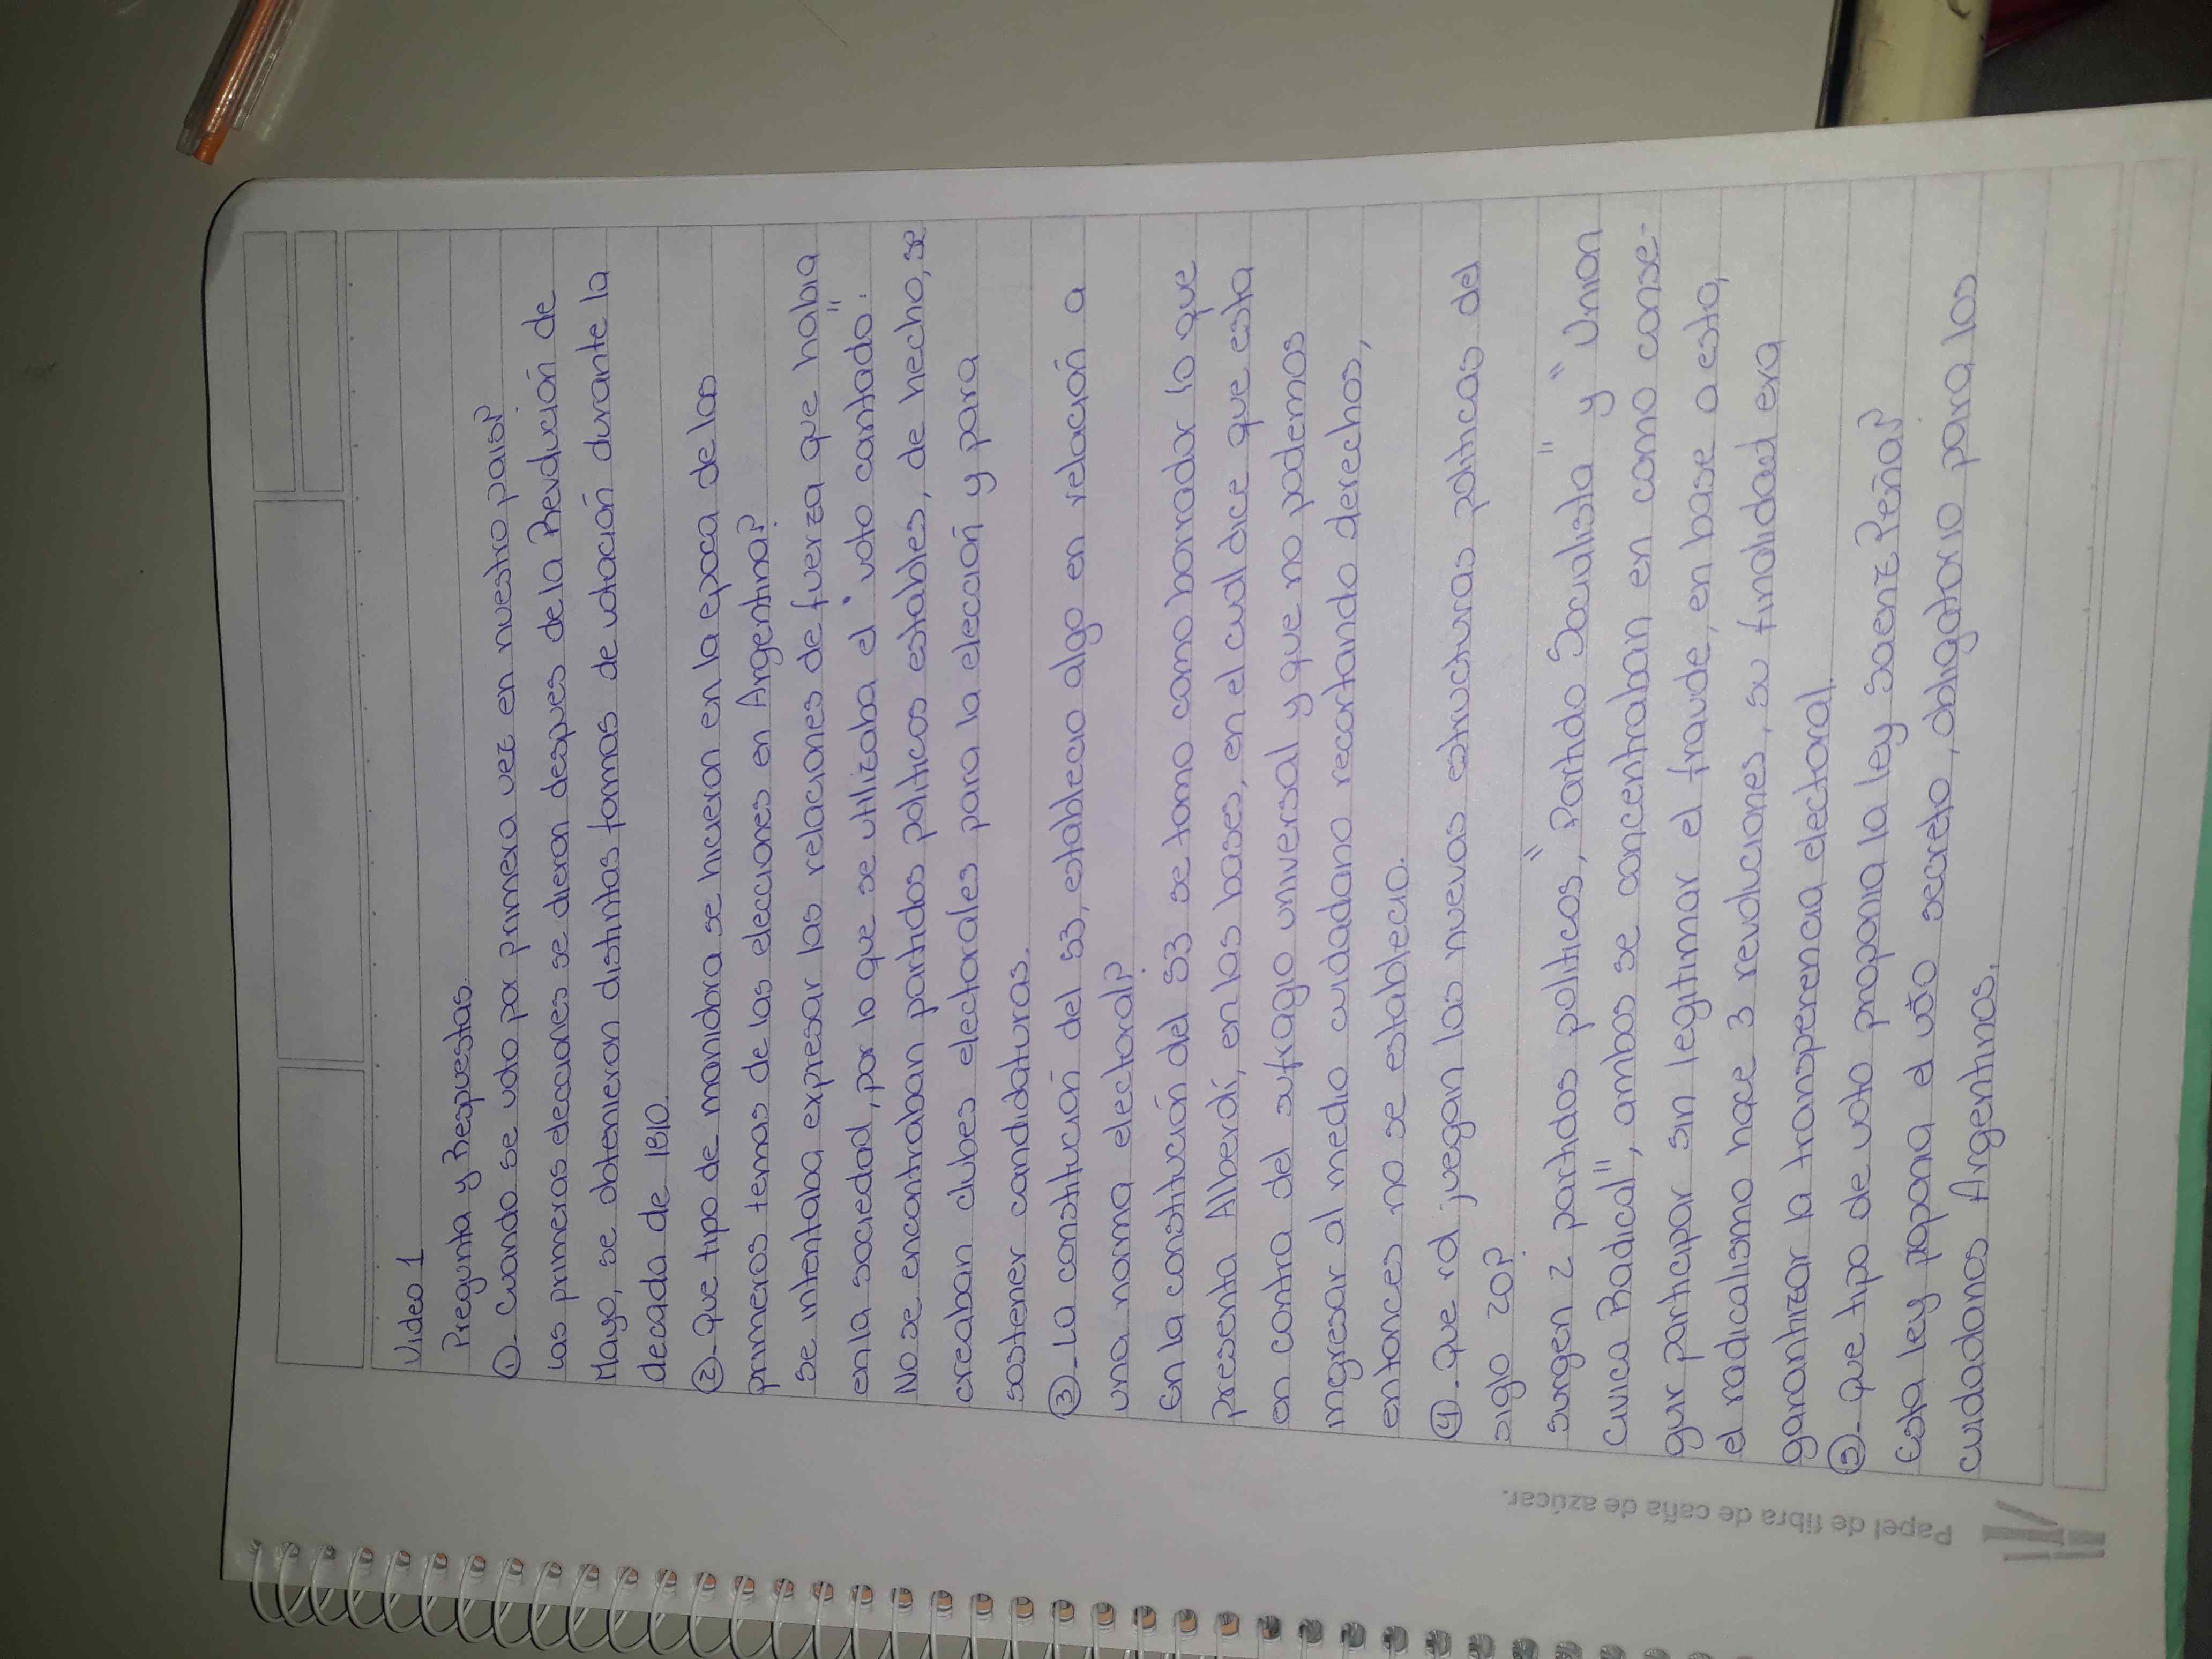 Video 1
Pregunta y Respuestas.
①- Cuando se voto por primera vez en nuestro pais?
Las primeras elecciones se dieron despues de la Revolución de
Mayo, se obtenieron distintas formas de votación durante la
decada de 1810.
②- Que tipo de maniobra se hicieron en la epoca de los
primeros temas de las elecciones en Argentina?
Se intentaba expresar las relaciones de fuerza que habia
en la sociedad, por lo que se utilizaba el "voto cantado".
No se encontraban partidos politicos estables, de hecho, se
creaban clubes electorales para la elección y para
sostener candidaturas.
③- La constitución del 53, establecio algo en relación a
una norma electoral?
En la constitución del 53 se tomo como borrador lo que
presenta Alberdi, en las bases, en el cual dice que esta
en contra del sufragio universal y que no podemos
ingresar al medio cuidadano recortando derechos,
entonces no se establecio.
④- Que rol juegan las nuevas estructuras politicas del
siglo 20?
surgen 2 partidos politicos, "Partido Socialista" y "Union
Civica Radical", ambos se concentraban en como conse-
guir participar sin legitimar el fraude, en base a esto,
el radicalismo hace 3 revoluciones, su finalidad era
garantizar la transperencia electoral.
⑤- Que tipo de voto proponia la ley saenz Peña?
Esta ley popona el voto secreto, obligatorio para los
cuidadanos Argentinos.
Papel de fibra de caña de azúcar.